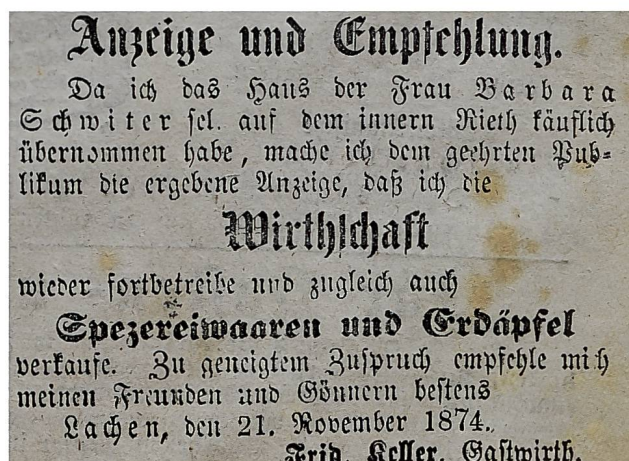 Anzeige und Empfehlung.
Da ich das Haus der Frau Barbara
Schwiter sel. auf dem innern Rieth käuflich
übernommen habe, mache ich dem geehrten Pub-
likum die ergebene Anzeige, daß ich die
Wirthschaft
wieder fortbetreibe und zugleich auch
Spezereiwaaren und Erdäpfel
verkaufe. Zu geneigtem Zuspruch empfehle mich
meinen Freunden und Gönnern bestens
Lachen, den 21. November 1874.
Frid. Keller, Gastwirth.